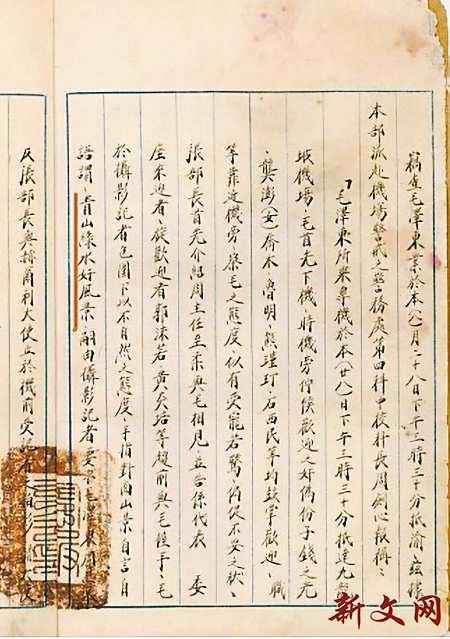 竊查毛澤東業於本(八)月二十八日下午三時三十分抵渝,茲據
本部派赴機場警戒之警務處第四科中校科長周劍心報稱:
「毛澤東所乘專機於本(廿八)日下午三時三十分抵達九龍
坡機場,毛首先下機,時機旁候歡迎之奸偽份子錢之光
、龔澎(女)喬木、魯明、熊瑾玎、石西民等均鼓掌歡迎,職
等靠近機旁,察毛之態度,似有受寵若驚,侷促不安之狀,
張部長首先介紹周主任至柔與毛相見,並告係代表 委
座來迎者,旋歡迎者郭沫若黃炎培等趨前與毛握手,毛
於攝影記者包圍下以不自然之態度,手指對面山景,自言自
語謂:青山綠水好風景,嗣由攝影記者要
及張部長與赫爾利大使立於機前受記者
新文网